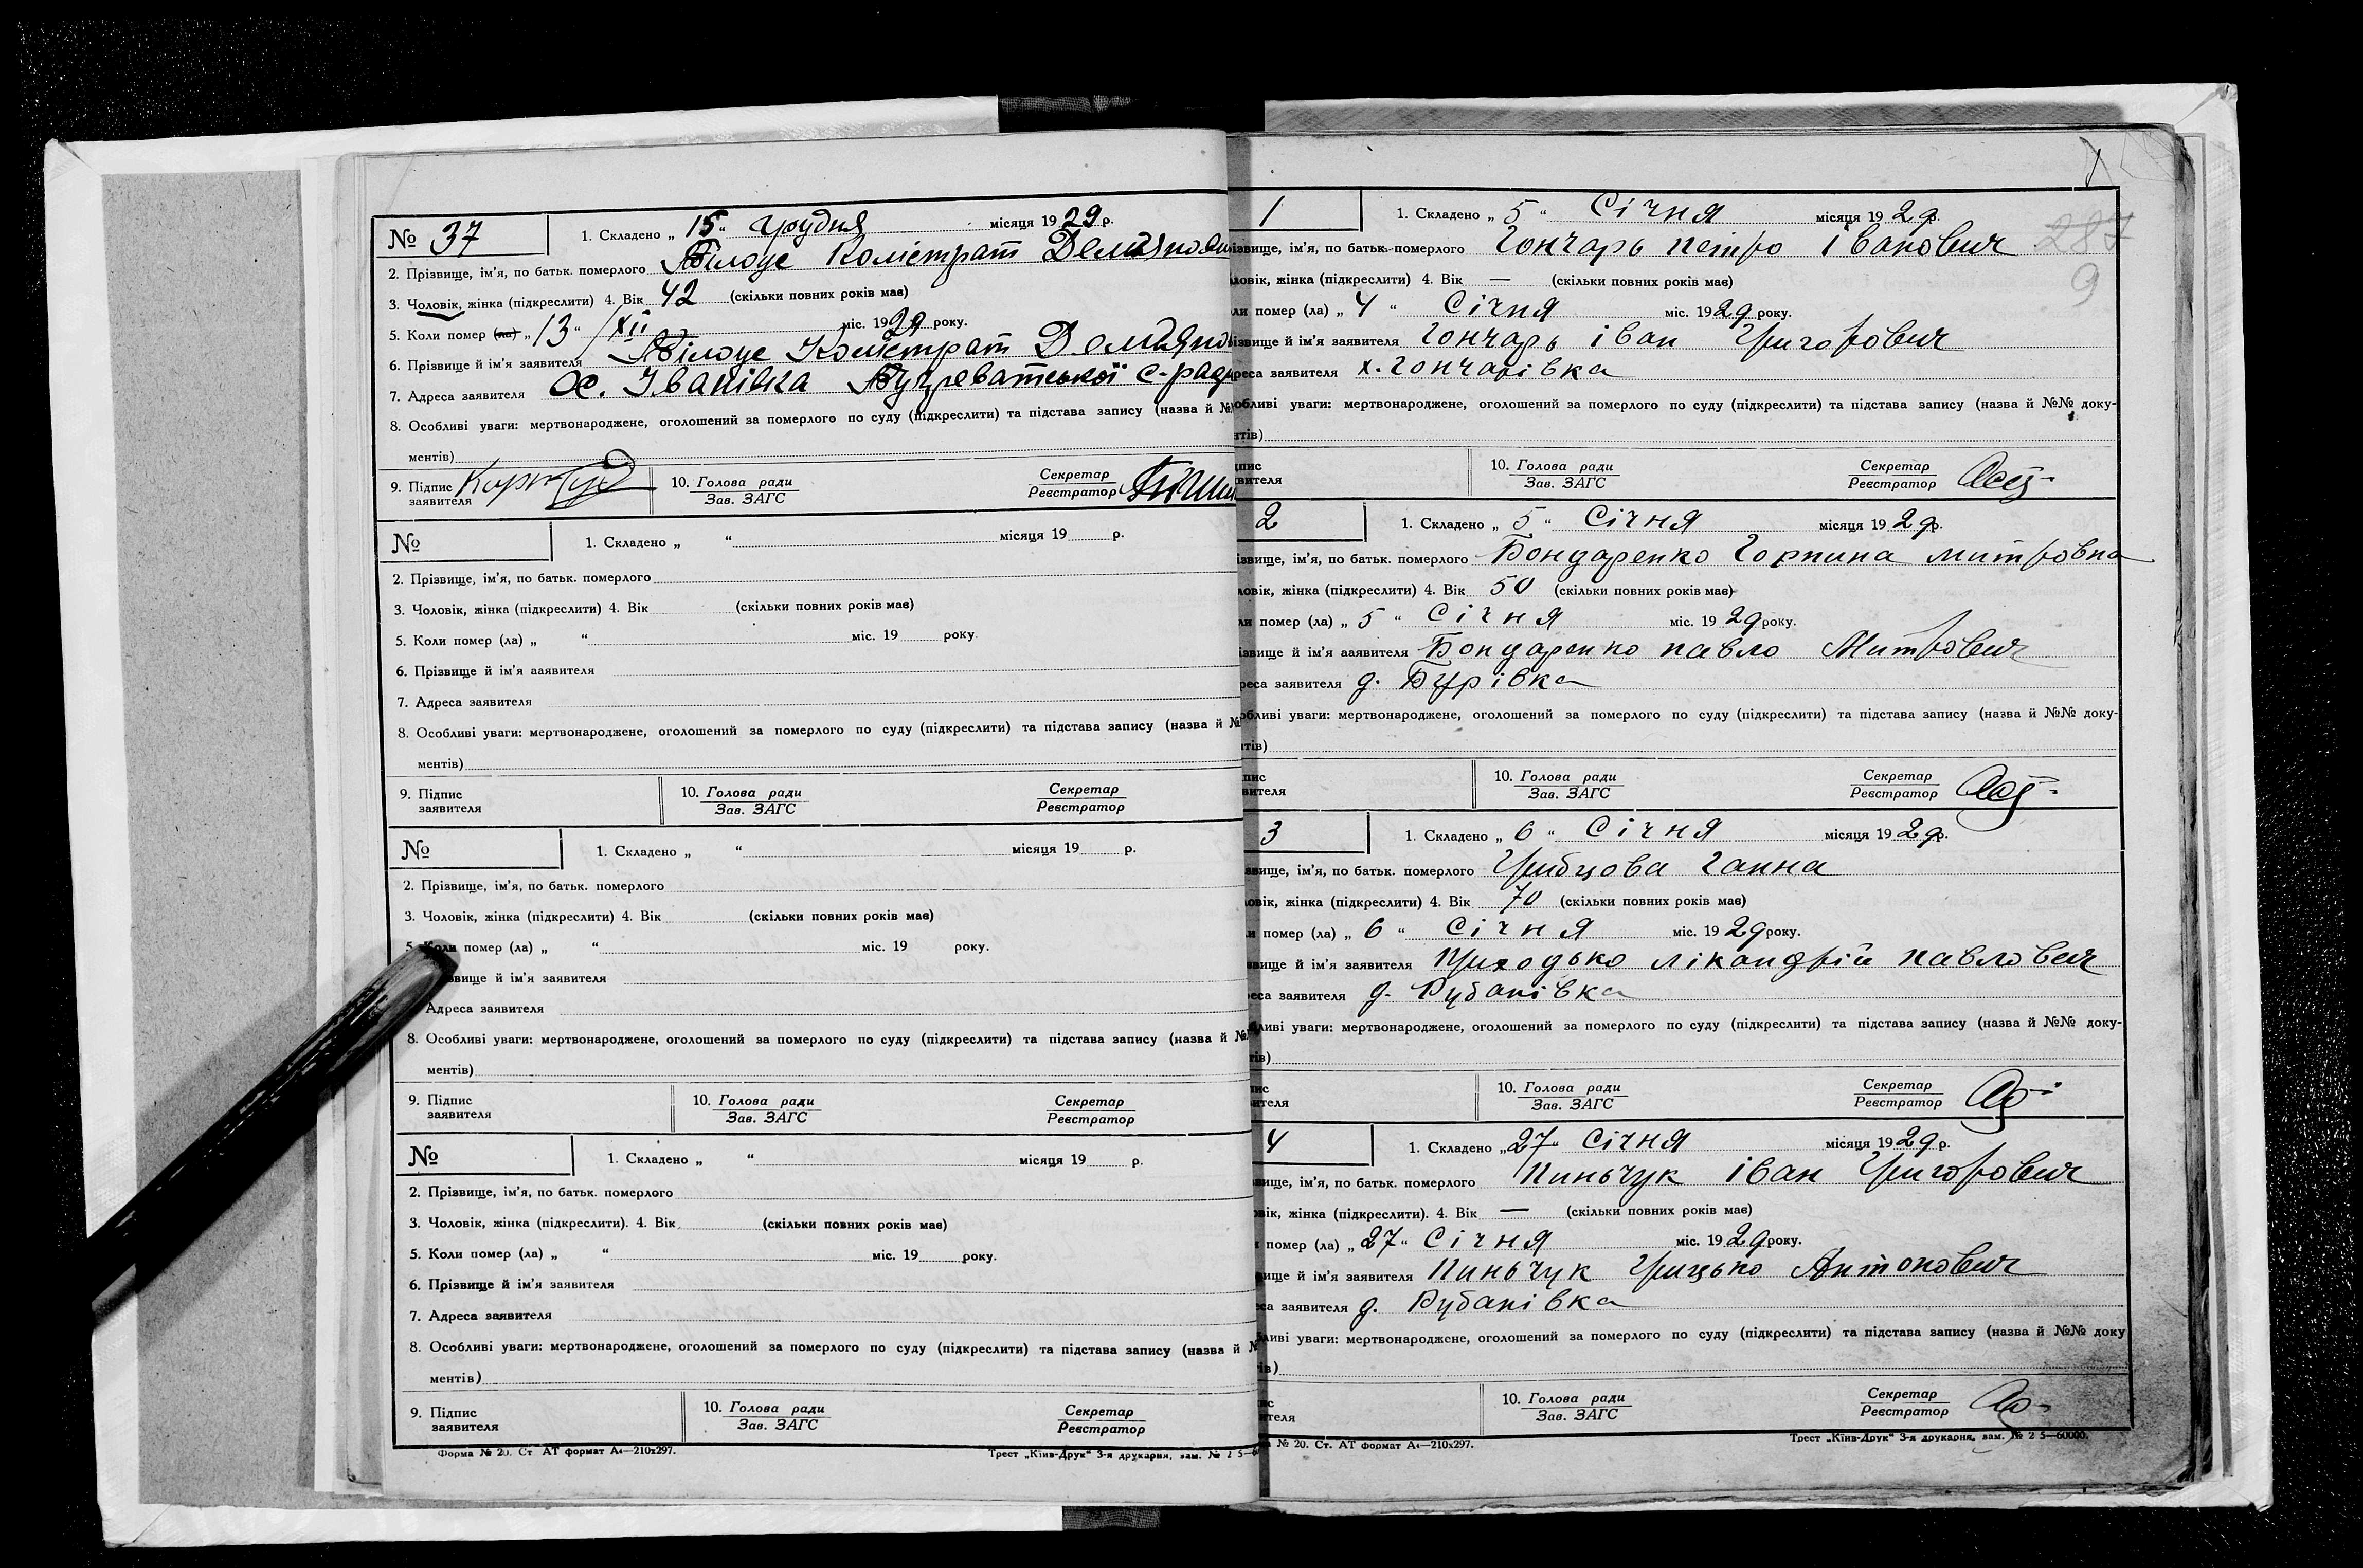 № 37
1. Складено „ 15 “ грудня місяця 1929 р.
2. Прізвище, ім'я, по батьк. померлого Білоус Калістрат Демянови
3. Чоловік, жінка (підкреслити) 4. Вік 42 (скільки повних років має)
5. Коли помер (ла) „ 13 “ XII міс. 1929 року.
6. Прізвище й ім'я заявителя Білоус Калістрат Демяно
7. Адреса заявителя х. Іванівка с-рад
8. Особливі уваги: мертвонароджене, оголошений за померлого по суду (підкреслити) та підстава запису (назва й №
ментів)
9. Підпис заявителя
10. Голова ради
Зав. ЗАГС
Секретар
Реєстратор
№
1. Складено „ “ місяця 19 р.
2. Прізвище, ім'я, по батьк. померлого
3. Чоловік, жінка (підкреслити) 4. Вік (скільки повних років має)
5. Коли помер (ла) „ “ міс. 19 року.
6. Прізвище й ім'я заявителя
7. Адреса заявителя
8. Особливі уваги: мертвонароджене, оголошений за померлого по суду (підкреслити) та підстава запису (назва й №
ментів)
9. Підпис заявителя
10. Голова ради
Зав. ЗАГС
Секретар
Реєстратор
№
1. Складено „ “ місяця 19 р.
2. Прізвище, ім'я, по батьк. померлого
3. Чоловік, жінка (підкреслити) 4. Вік (скільки повних років має)
5. Коли помер (ла) „ “ міс. 19 року.
звище й ім'я заявителя
Адреса заявителя
8. Особливі уваги: мертвонароджене, оголошений за померлого по суду (підкреслити) та підстава запису (назва й №
ментів)
9. Підпис заявителя
10. Голова ради
Зав. ЗАГС
Секретар
Реєстратор
№
1. Складено „ “ місяця 19 р.
2. Прізвище, ім'я, по батьк. померлого
3. Чоловік, жінка (підкреслити). 4. Вік (скільки повних років має)
5. Коли помер (ла) „ “ міс. 19 року.
6. Прізвище й ім'я заявителя
7. Адреса заявителя
8. Особливі уваги: мертвонароджене, оголошений за померлого по суду (підкреслити) та підстава запису (назва й №
ментів)
9. Підпис заявителя
10. Голова ради
Зав. ЗАГС
Секретар
Реєстратор
Форма № 20. Ст АТ формат А4—210х297.
Трест „Київ-Друк“ 3-я друкарня, зам. № 2 5—6
287
9
1
1. Складено „ 5 “ Січня місяця 1929 р.
ізвище, ім'я, по батьк. померлого Гончарь петро іванович
ловік, жінка (підкреслити) 4. Вік — (скільки повних років має)
ли помер (ла) „ 4 “ Січня міс. 1929 року.
ізвище й ім'я заявителя Гончарь іван Григорович
реса заявителя х. Гончарівка
обливі уваги: мертвонароджене, оголошений за померлого по суду (підкреслити) та підстава запису (назва й №№ доку-
нтів)
дпис
вителя
10. Голова ради
Зав. ЗАГС
Секретар
Реєстратор
2
1. Складено „ 5 “ Січня місяця 1929 р.
ізвище, ім'я, по батьк. померлого Бондаренко Горпина митровна
ловік, жінка (підкреслити) 4. Вік 50 (скільки повних років має)
ли помер (ла) „ 5 “ Січня міс. 1929 року.
ізвище й ім'я заявителя Бондаренко павло Митрович
реса заявителя д. Бурівка
обливі уваги: мертвонароджене, оголошений за померлого по суду (підкреслити) та підстава запису (назва й №№ доку-
нтів)
пис
вителя
10. Голова ради
Зав. ЗАГС
Секретар
Реєстратор
3
1. Складено „ 6 “ Січня місяця 1929 р.
звище, ім'я, по батьк. померлого Грибцова Ганна
овік, жінка (підкреслити) 4. Вік 70 (скільки повних років має)
и помер (ла) „ 6 “ Січня міс. 1929 року.
звище й ім'я заявителя Приходько лікандрій павлович
еса заявителя д. Рубанівка
бливі уваги: мертвонароджене, оголошений за померлого по суду (підкреслити) та підстава запису (назва й №№ доку-
тів)
пис
ителя
10. Голова ради
Зав. ЗАГС
Секретар
Реєстратор
4
1. Складено „ 27 “ Січня місяця 1929 р.
вище, ім'я, по батьк. померлого Пиньчук іван Григорович
овік, жінка (підкреслити). 4. Вік — (скільки повних років має)
помер (ла) „ 27 “ Січня міс. 1929 року.
вище й ім'я заявителя Пиньчук Грицько Антонович
са заявителя д. Рубанівка
бливі уваги: мертвонароджене, оголошений за померлого по суду (підкреслити) та підстава запису (назва й №№ доку
ів)
ис
ителя
10. Голова ради
Зав. ЗАГС
Секретар
Реєстратор
№ 20. Ст. АТ формат А4—210х297.
Трест „Київ-Друк“ 3-я друкарня, зам. № 2 5—60000.